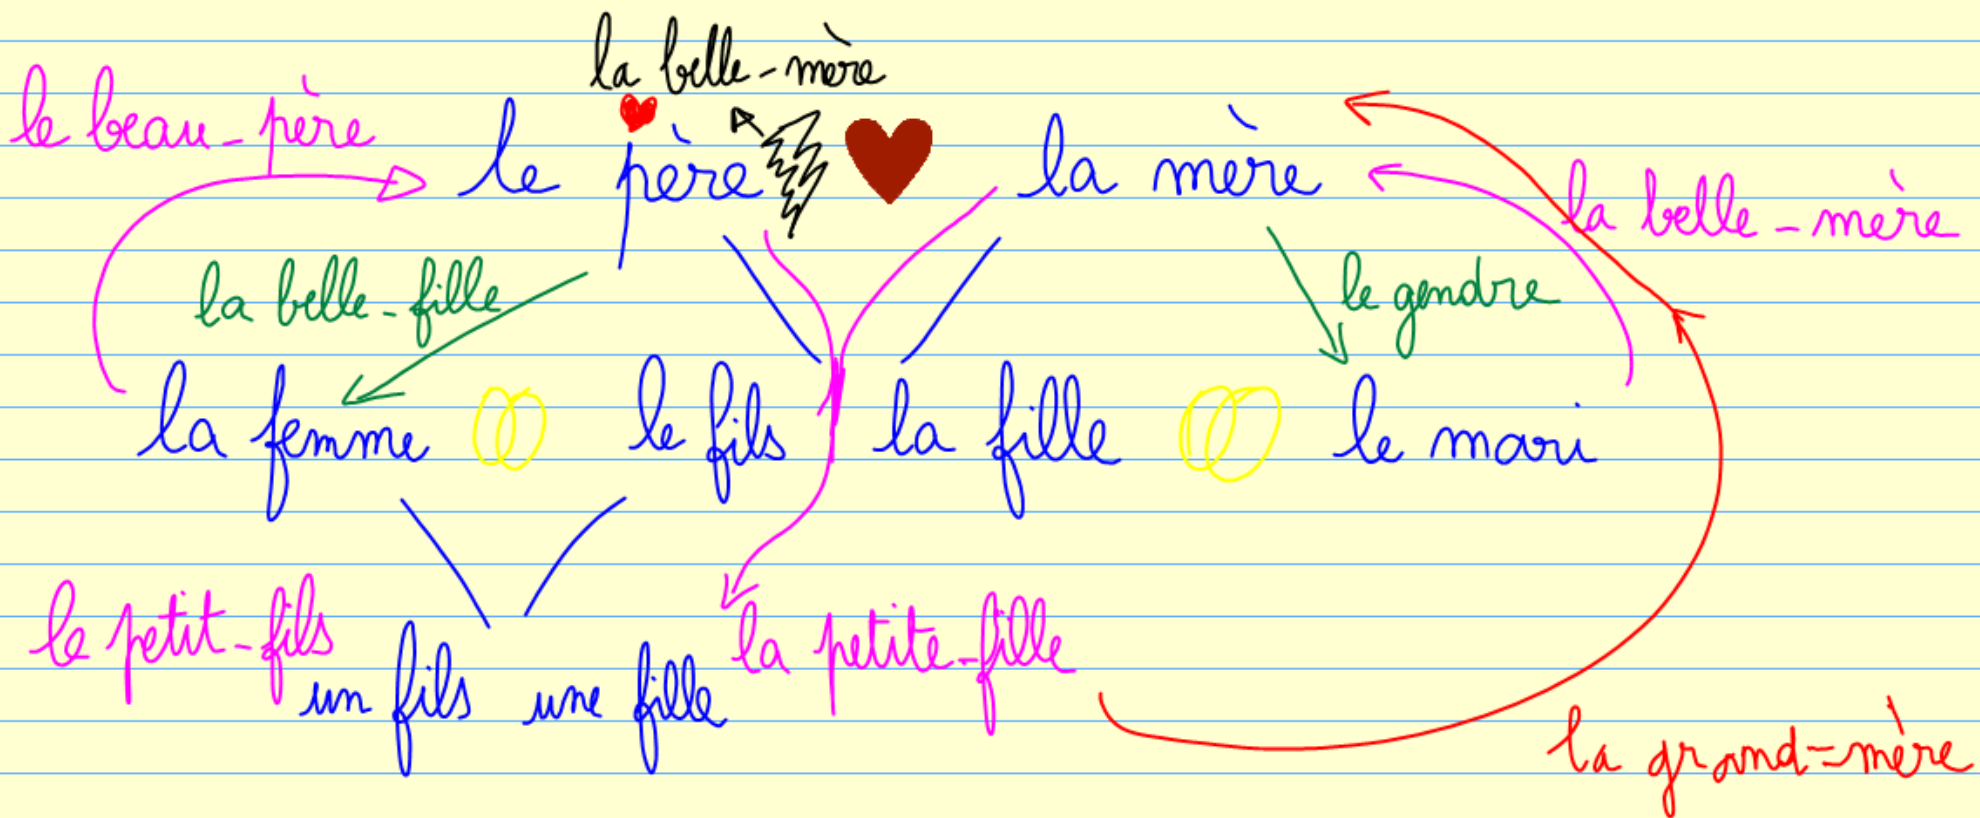 la belle-mère
le beau-père
le père la mère
la belle-mère
la belle-fille le gendre
la femme le fils la fille le mari
le petit-fils la petite-fille
un fils une fille
la grand-mère